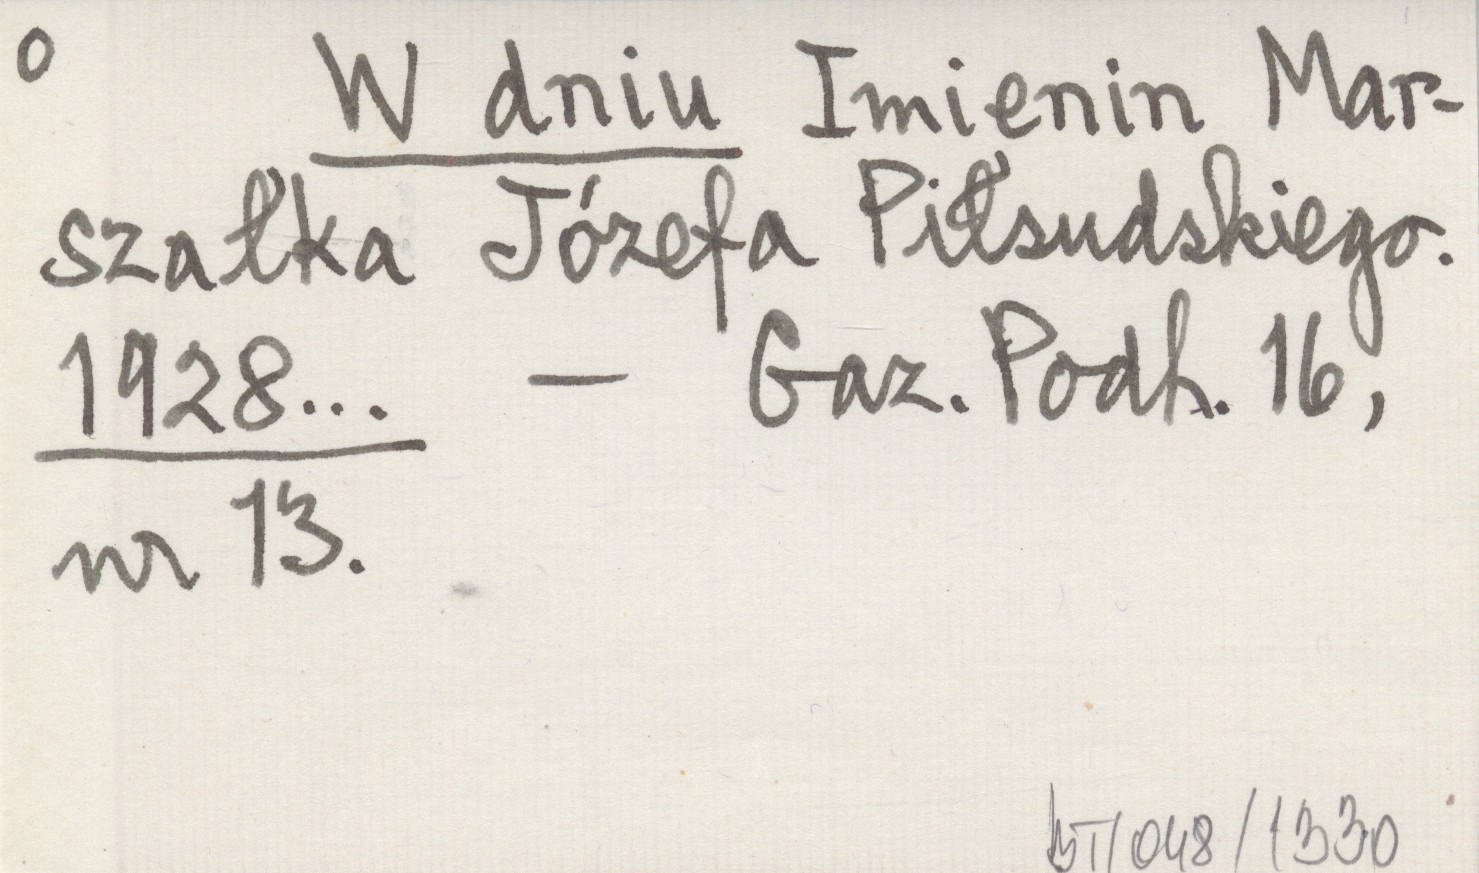 o
W dniu Imienin Mar-
szałka Józefa Piłsudskiego.
1928... — Gaz. Podh. 16,
nr 13.
/048/1330